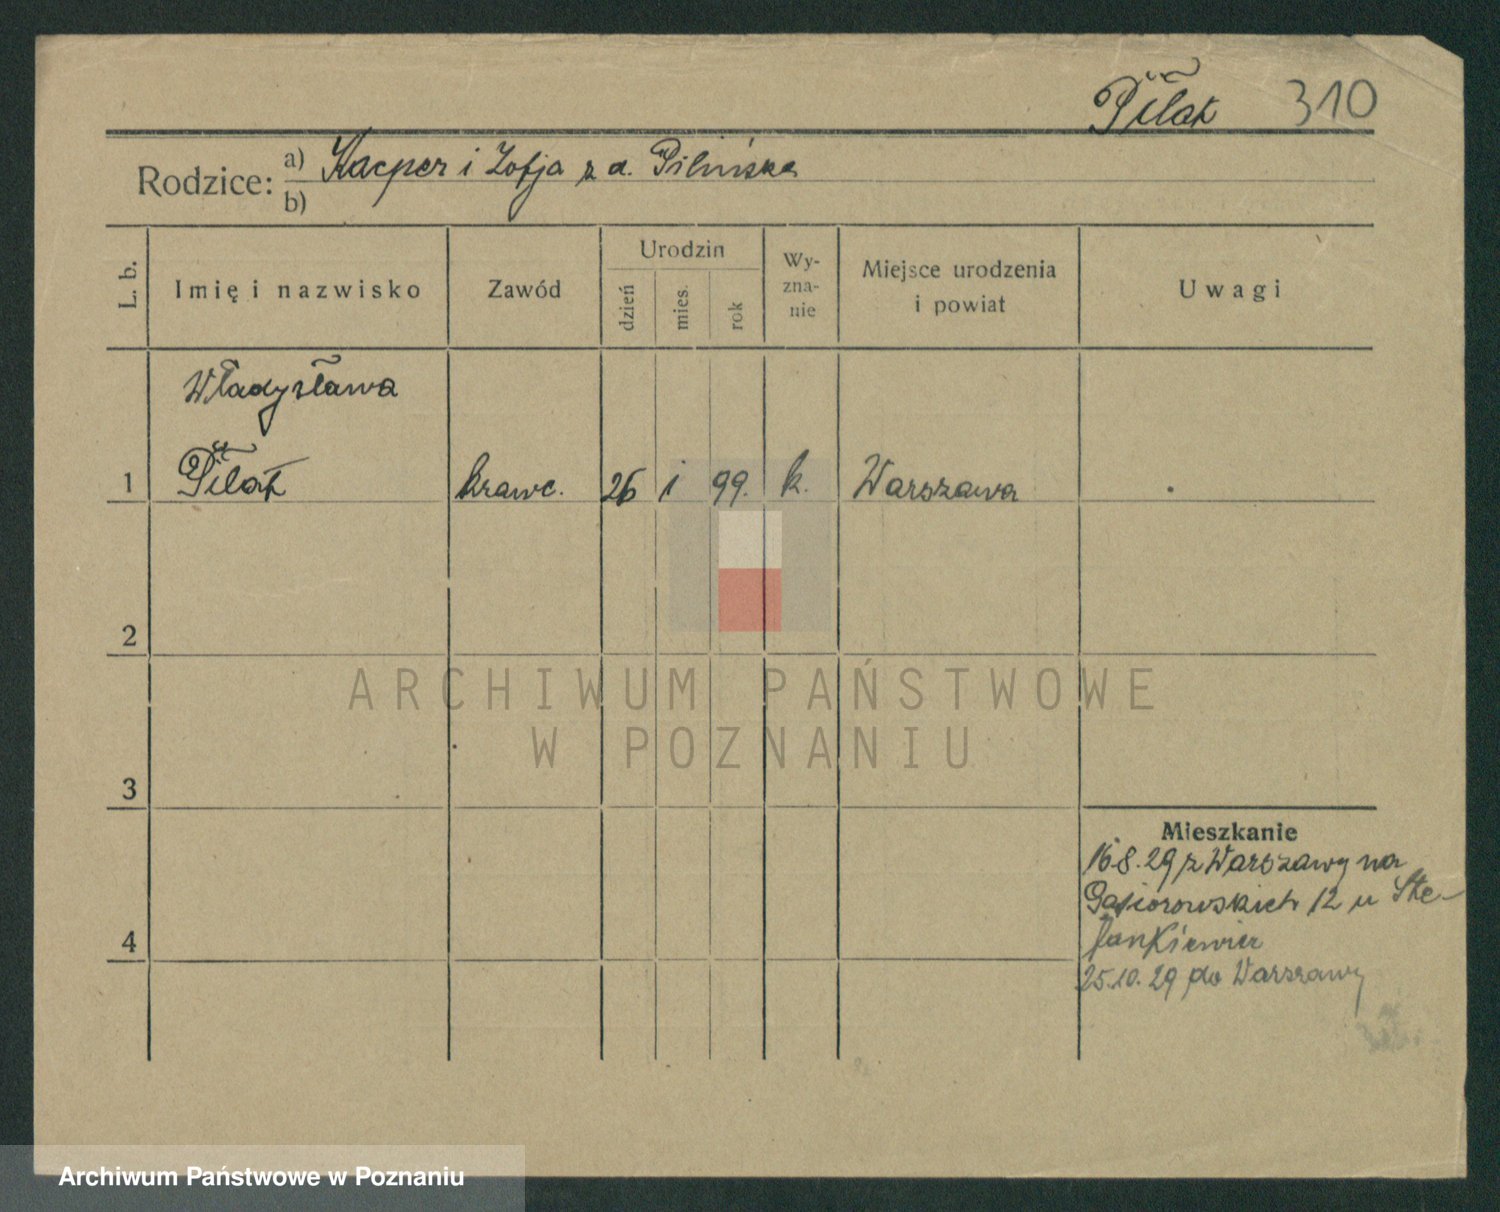 Piłat 310
Rodzice: a) Kacper i Zofja z d. Pilińska
b)
L. b. Imię i nazwisko Zawód Urodzin dzień mies. rok Wy-zna-nie Miejsce urodzenia i powiat Uwagi
Władysława
1 Piłat krawc. 26 i 99. k. Warszawa
2
ARCHIWUM PAŃSTWOWE
W POZNANIU
3
Mieszkanie
16.8.29 z Warszawy na
Gąsiorowskich 12 u
4
25.10.29 do Warszawy
Archiwum Państwowe w Poznaniu